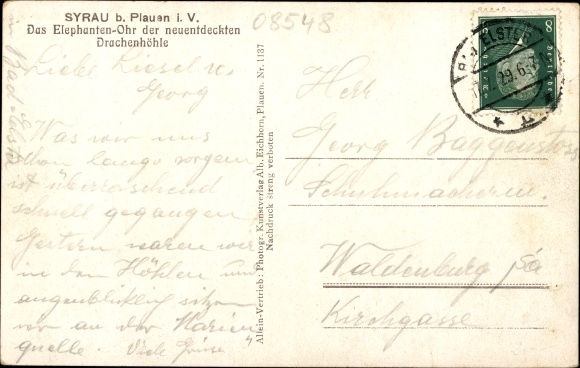 SYRAU b. Plauen i. V.
Das Elephanten-Ohr der neuentdeckten
Drachenhöhle
08548
Liebe Liesel u.
Georg
Was wir uns
schon lange sorgen
ist überraschend
schnell gegangen
Gestern waren wir
in den Höhlen und
augenblicklich sitzen
wir an der Marien
quelle. Viele Grüsse
Allein-Vertrieb: Photogr. Kunstverlag Alb. Eichhorn, Plauen. Nr. 1187
Nachdruck streng verboten
BAD ELSTER
8
Deutsches Reich
Herr
Georg Baggenstoss
Schuhmacherm.
Waldenburg Sa
Kirchgasse